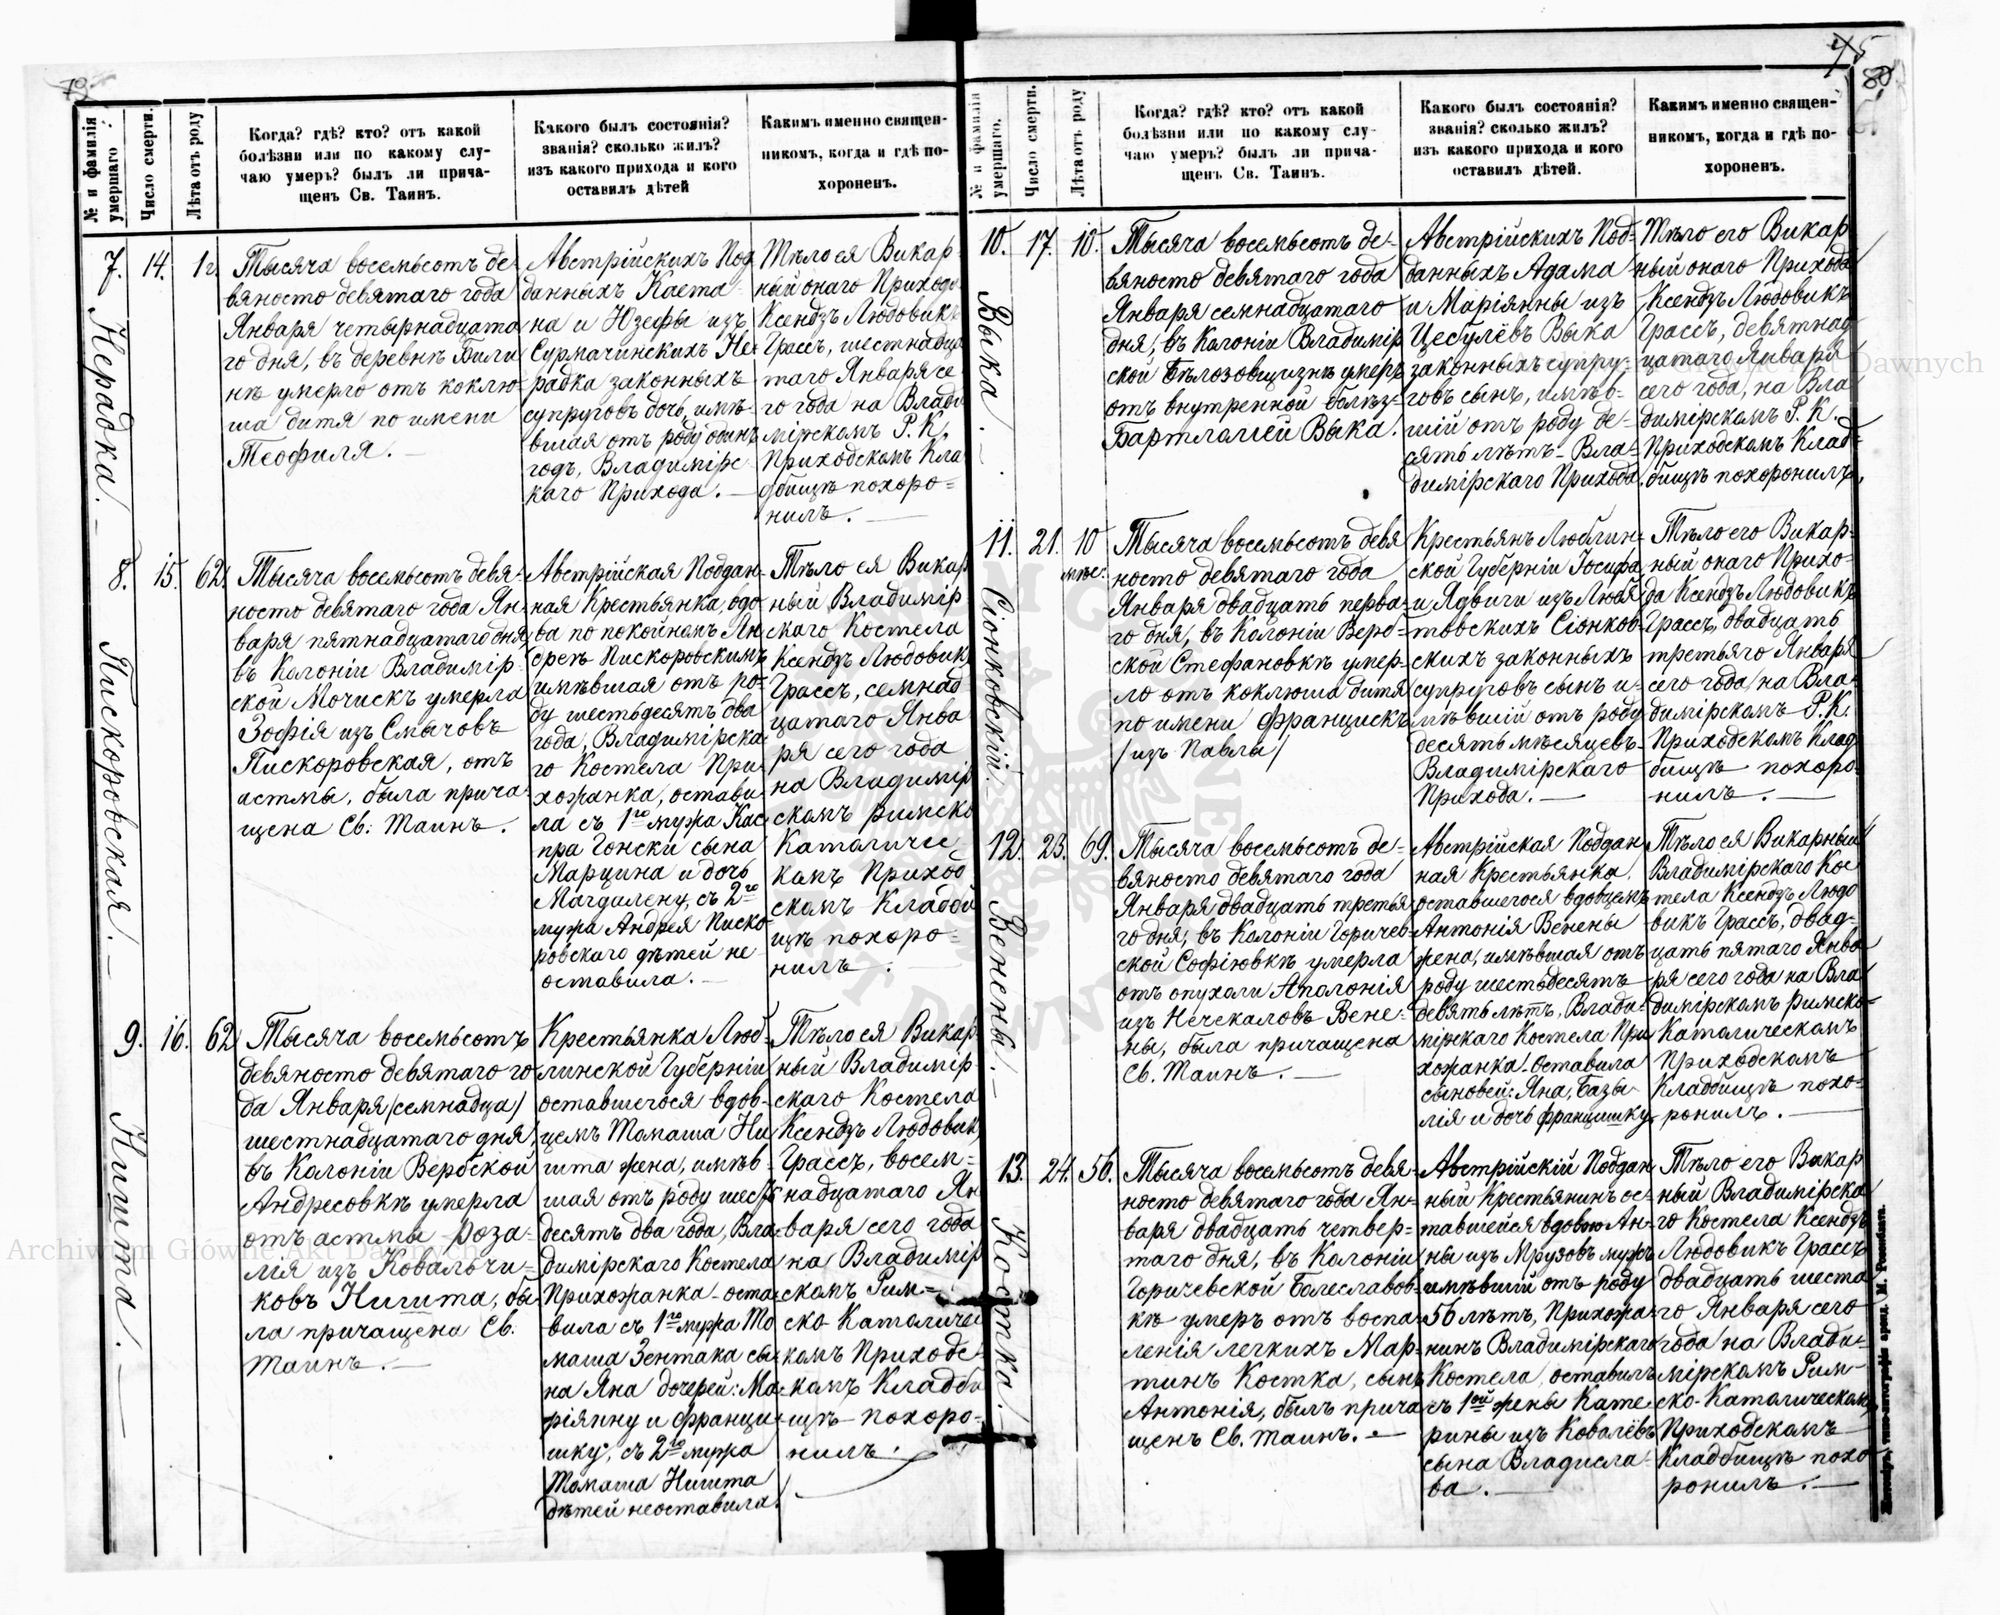 79
№ и фамилія умершаго
Число смерти.
Лѣта отъ роду
Когда? гдѣ? кто? отъ какой
болѣзни или по какому слу-
чаю умеръ? былъ ли прича-
щенъ Св. Таинъ.
Какого былъ состоянія?
званія? сколько жилъ?
изъ какого прихода и кого
оставилъ дѣтей
Какимъ именно священ-
никомъ, когда и гдѣ по-
хороненъ.
7. Нерадка. —
14.
1 г.
Тысяча восемьсотъ де-
вяносто девятаго года
Января четырнадцата
го дня, въ деревнѣ Били
нѣ умерло отъ коклю-
ша дитя по имени
Теофиля. —
Австрійскихъ Под
данныхъ Каета
на и Юзефы изъ
Сурмачинскихъ Не-
радка законныхъ
супруговъ дочь, имѣ-
вшая отъ роду одинъ
годъ, Владимірс
каго Прихода. —
Тѣло ея Викар-
ный онаго Прихода
Ксендзъ Людовикъ
Грассъ, шестнадца
таго Января се
го года на Влади
мірскомъ Р. К.
Приходскомъ Кла
дбищѣ похоро=
нилъ. —
8. Пискоровская. —
15.
62.
Тысяча восемьсотъ девя-
носто девятаго года Ян-
варя пятнадцатаго дня
въ Колоніи Владимір-
ской Мочискъ умерла
Зофія изъ Смычовъ
Пискоровская, отъ
астмы, была прича
щена Св: Таинъ.
Австрійская Поддан-
ная Крестьянка, вдо-
ва по покойномъ Ан
среѣ Пискоровскимъ
имѣвшая отъ ро-
ду шестьдесятъ два
года, Владимірска
го Костела При-
хожанка, остави
ла съ 1го мужа Кас
пра Гонски сына
Марцина и дочь
Магдалену, съ 2го
мужа Андрея Писко
ровскаго дѣтей не
оставила. —
Тѣло ея Викар
ный Владимір
скаго Костела
Ксендзъ Людовикъ
Грассъ, семнад
цатаго Янва
ря сего года
на Владимір
скомъ Римско
Католичес
комъ Приход
скомъ Кладби
щѣ похоро=
нилъ. —
9. Ништа. —
16.
62
Тысяча восемьсотъ
девяносто девятаго го
да Января /семнадца/
шестнадцатаго дня,
въ Колоніи Вербской
Андресовкѣ умерла
отъ астмы Роза-
лія изъ Ковальчи-
ковъ Ништа, бы
ла причащена Св.
Таинъ. —
Крестьянка Люб
линской Губерніи
оставшегося вдов-
цемъ Томаша Ни
шта жена, имѣв-
шая отъ роду шесть
десятъ два года, Вла-
димірскаго Костела
Прихожанка - оста
вила съ 1го мужа То
маша Зентака сы-
на Яна дочерей: Ма-
ріянну и Францы
шку, съ 2го мужа
Томаша Ништа
дѣтей неоставила.
Тѣло ея Викар
ный Владимір-
скаго Костела
Ксендзъ Людовикъ
Грассъ, восем=
надцатаго Ян
варя сего года
на Владимір
скомъ Рим=
ско Католичес
комъ Приходс
комъ Кладби
щѣ похоро-
нилъ.
75
80.
№ и фамилія умершаго.
Число смерти.
Лѣта отъ роду
Когда? гдѣ? кто? отъ какой
болѣзни или по какому слу-
чаю умеръ? былъ ли прича-
щенъ Св. Таинъ.
Какого былъ состоянія?
званія? сколько жилъ?
изъ какого прихода и кого
оставилъ дѣтей.
Какимъ именно священ-
никомъ, когда и гдѣ по-
хороненъ.
10. Выка. —
17.
10.
Тысяча восемьсотъ де-
вяносто девятаго года
Января семнадцатаго
дня, въ Колоніи Владимір
ской Бѣлозовщизнѣ умеръ
отъ внутренной болѣз-
Бартламей Выка.
Австрійскихъ Под-
данныхъ Адама
и Маріянны изъ
Цесулёвъ Выка
законныхъ супру-
говъ сынъ, имѣв-
шій отъ роду де-
сять лѣтъ - Вла-
димірскаго Прихода.
Тѣло его Викар
ный онаго Прихода
Ксендзъ Людовикъ
Грассъ, девятнад
цатаго Января
сего года, на Вла
димірскомъ Р. К.
Приходскомъ Клад-
бищѣ похоронилъ.
11. Сіонковскій. —
21.
10
мѣс:
Тысяча восемьсотъ девя
носто девятаго года
Января двадцать перва-
го дня, въ Колоніи Верб-
ской Стефановкѣ умер-
ло отъ коклюша дитя
по имени Францискъ
/изъ Павла/
Крестьянъ Люблин-
ской Губерніи Іосифа
и Ядвиги изъ Люб
товскихъ Сіонков-
скихъ законныхъ
супруговъ сынъ и-
мѣвшій отъ роду
десять мѣсяцевъ
Владимірскаго
Прихода. —
Тѣло его Викар-
ный онаго Прихо-
да Ксендзъ Людовикъ
Грассъ, двадцать
третьяго Января
сего года на Вла-
димірскомъ Р. К.
Приходскомъ клад
бищѣ похоро-
нилъ. —
12. Венены. —
23.
69.
Тысяча восемьсотъ де-
вяносто девятаго года
Января двадцать третья
го дня, въ Колоніи Горичев-
ской Софіювкѣ умерла
отъ опухоли Аполонія
изъ Нечекаловъ Вене-
ны, была причащена
Св. Таинъ. —
Австрійская Поддан
ная Крестьянка,
оставшегося вдовцемъ
Антонія Венены
жена, имѣвшая отъ
роду шестьдесятъ
девять лѣтъ, Влади-
мірскаго Костела При
хожанка. Оставила
сыновей: Яна, Базы-
лія и дочь Францишку
Тѣло ея Викарный
Владимірскаго Кос
тела Ксендзъ Людо
викъ Грассъ, двад-
цать пятаго Янва
ря сего года на Вла
димірскомъ Римско-
Католическомъ
Приходскомъ
Кладбищѣ похо-
ронилъ. —
13. Костка. —
24.
56.
Тысяча восемьсотъ девя-
носто девятаго года Ян-
варя двадцать четвер-
таго дня, въ Колоніи
Горичевской Болеславов-
кѣ умеръ отъ воспа-
ленія легкихъ Мар-
тинъ Костка, сынъ
Антонія, былъ прича
щенъ Св. Таинъ. —
Австрійскій Поддан
ный Крестьянинъ ос-
тавшейся вдовою Ан-
ны изъ Мрузовъ мужъ
имѣвшій отъ роду
56 лѣтъ, Прихожа-
нинъ Владимірскаго
Костела, оставилъ
съ 1ой жены Кате
рины изъ Ковалёвъ
сына Владисла-
ва. —
Тѣло его Викар
ный Владимірска
го Костела Ксендзъ
Людовикъ Грассъ
двадцать шеста
го Января сего
года на Влади-
мірскомъ Рим-
ско-Католическомъ
Приходскомъ
Кладбищѣ похо
ронилъ. —
Житоміръ, типо-литографія аренд. М. Розенблата.
Archiwum Główne Akt Dawnych
Archiwum Główne Akt Dawnych